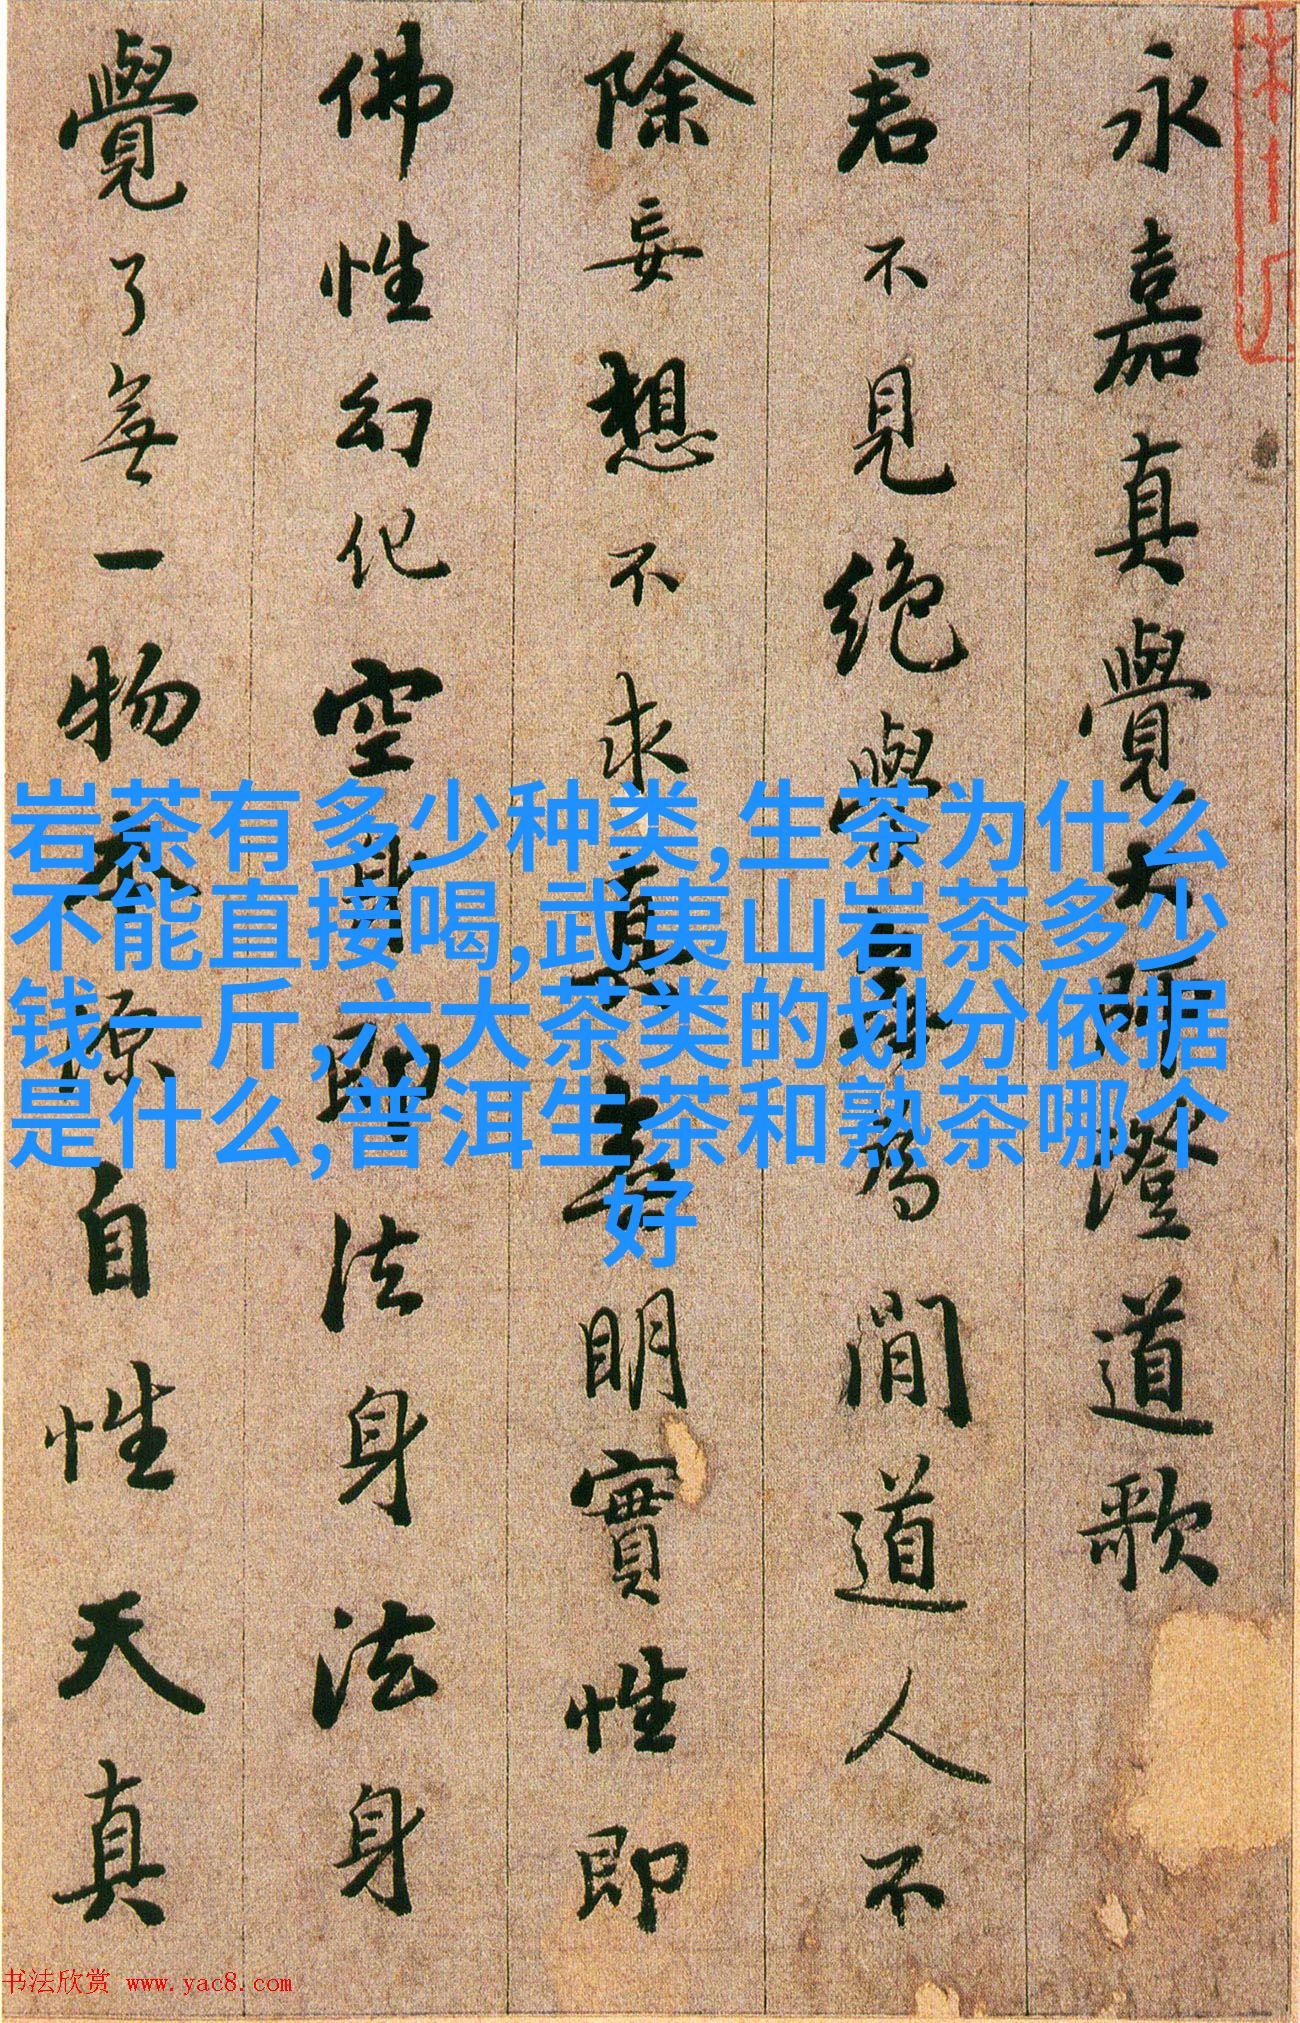 永嘉真覺大師證道歌
君不見絕學無為閒道人不
除妄想不求真無明實性即
佛性幻化空身即法身法身
覺了無一物本源自性天真
岩茶有多少种类,生茶为什么
不能直接喝,武夷山岩茶多少
钱一斤,六大茶类的划分依据
是什么,普洱生茶和熟茶哪个
好
书法欣赏 www.yac8.com